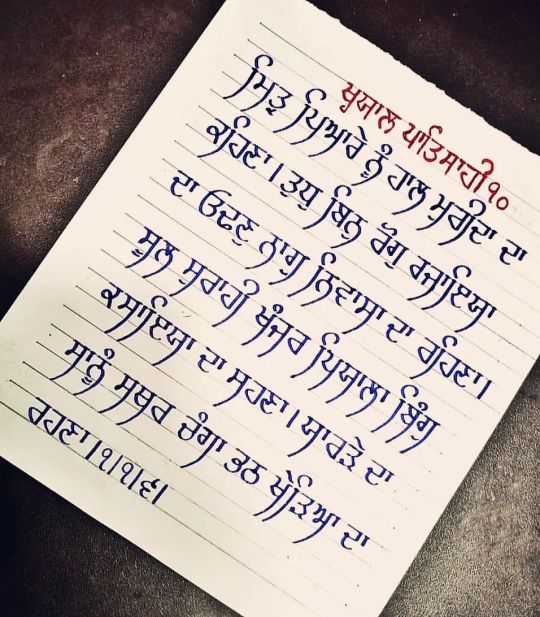 ਖ੍ਯਾਲ ਪਾਤਿਸਾਹੀ ੧੦
ਮਿਤ੍ਰ ਪਿਆਰੇ ਨੂੰ ਹਾਲ ਮੁਰੀਦਾ ਦਾ
ਕਹਿਣਾ। ਤੁਧੁ ਬਿਨੁ ਰੋਗੁ ਰਜਾਇਯਾ
ਦਾ ਓਢਣੁ ਨਾਗੁ ਨਿਵਾਸਾ ਦਾ ਰਹਿਣਾ।
ਸੂਲ ਸੁਰਾਹੀ ਖੰਜਰ ਪਿਯਾਲਾ ਬਿੰਗੁ
ਕਸਾਇਯਾ ਦਾ ਸਹਣਾ। ਯਾਰੜੇ ਦਾ
ਸਾਨੂੰ ਸਥਰ ਚੰਗਾ ਭਠ ਖੇੜਿਆ ਦਾ
ਰਹਣਾ।੧।੧।੬।